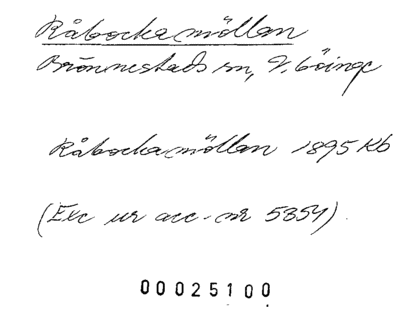 Råbockamöllan
Brönnestads sn, V. Göinge
Råbockamöllan 1895 Kb
(Exc ur acc.-nr 5354).
00025100